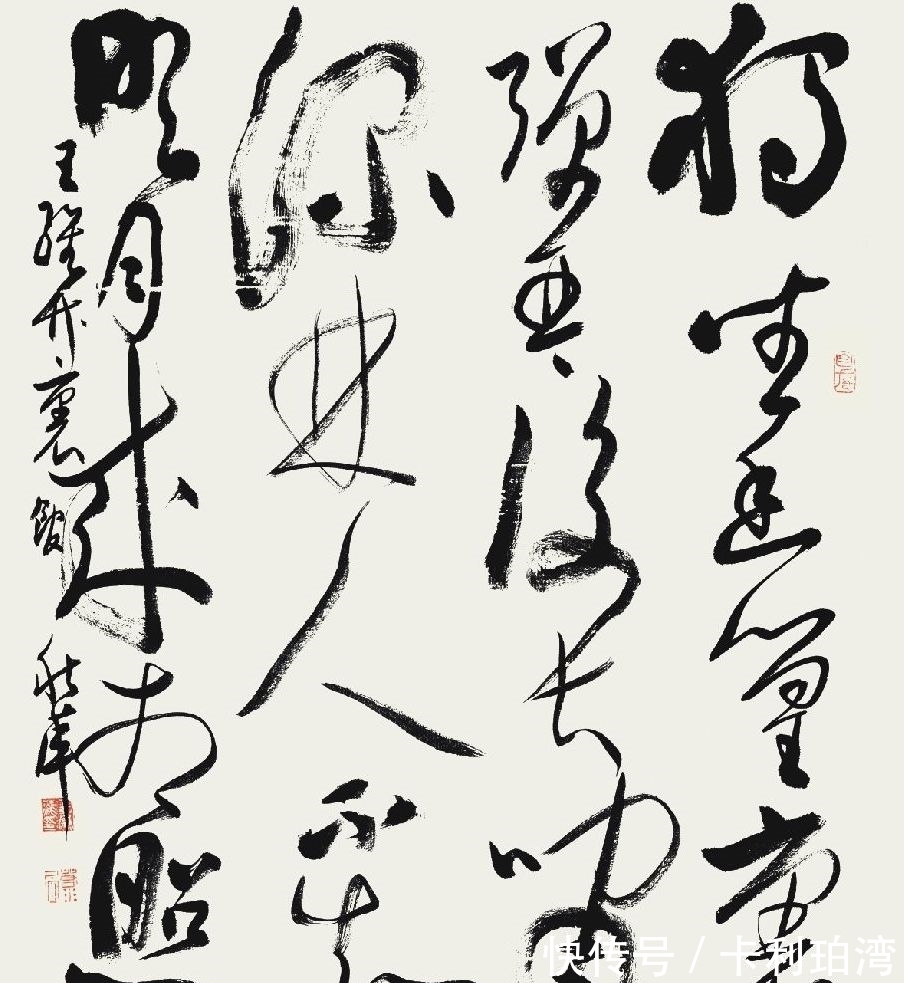 獨坐幽篁裏
彈琴復長嘯
深林人不知
明月來相照
王維竹裏館
快传号 / 卡利珀湾